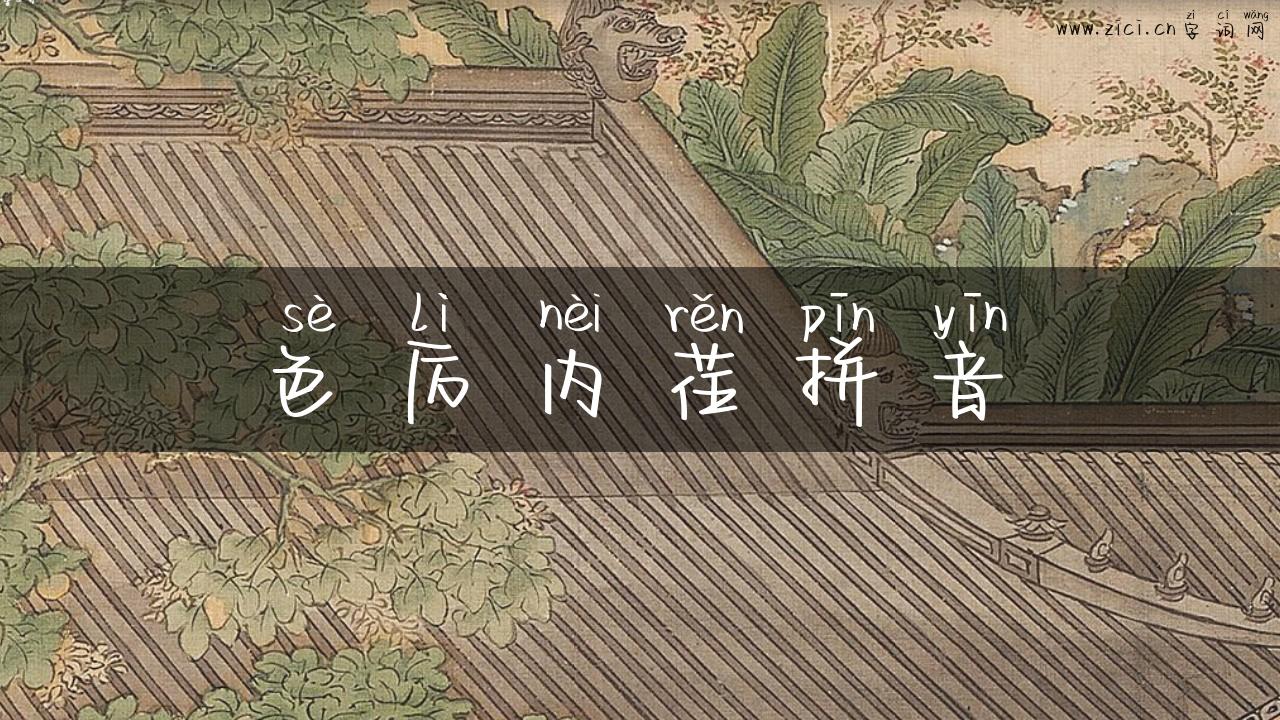 zì cí wǎng
www.zici.cn 字词网
sè lì nèi rěn pīn yīn
色厉内荏拼音